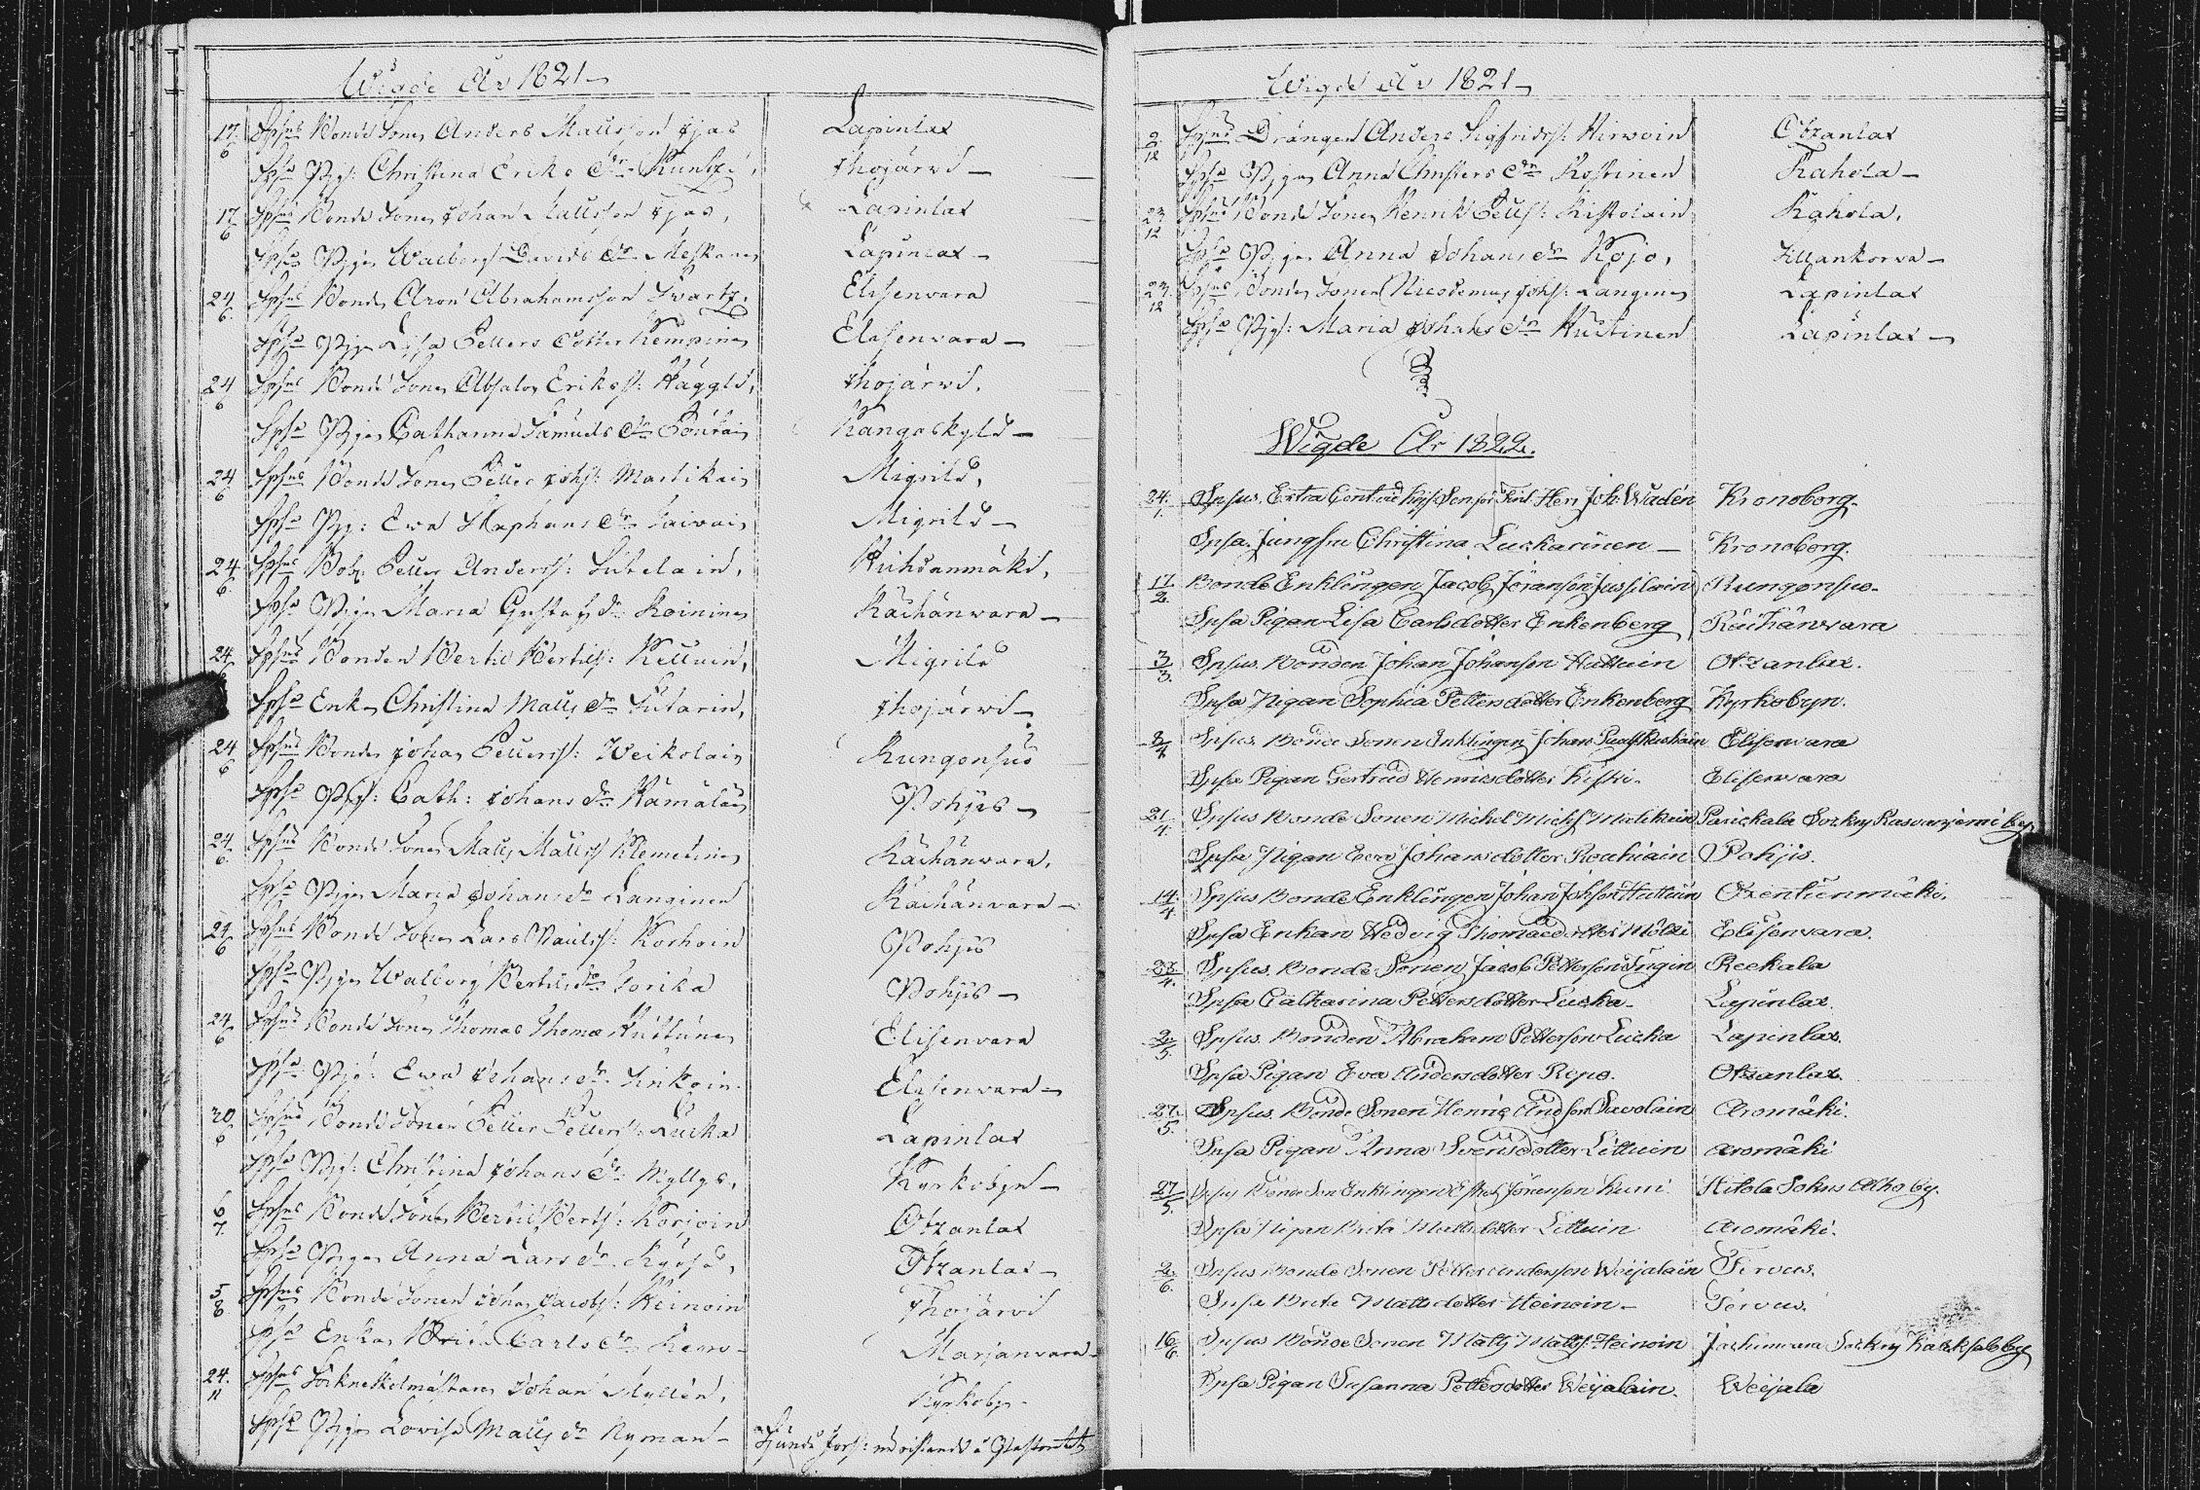 Wigde År 1821
17/6 Spsus Bonde Sonen Anders Mattsson Ijas Lapinlax
Spsa Pig: Christina Eriks dr Kuntzi, Ihojärvi
17/6 Spsus Bonde Sonen Johan Mattsson Ijas, Lapinlax
Spsa Pigan Walborg Davids dr Meskanen Lapinlax
24/6 Spsus Bonden Aron Abrahamsson Svartz. Elisenvara
Spsa Pigan Lisa Petters dotter Kempinen Elisenvara
24/6 Spsus Bonde Sonen Absalon Erikss: Häggld, Ihojärvi.
Spsa Pigan Catharina Samuels dr Kangaskylä
24/6 Spsus Bonde Sonen Petter Johs: Martikain Migrilä,
Spsa Pig: Ewa Staphans dr Migrilä
24/6 Spsus Petter Anderss: Sutelain, Huihdanmäki,
Spsa Pigan Maria Gustafs dr Koininen Räihänvara
24/6 Spsus Bonden Bertil Bertilss: Kettuin, Migrilä
Spsa Enkan Christina Matts dr Sutarin, Ihojärvi
24/6 Spsus Bonden Johan Petterss: Weikolain Rungonsuo
Spsa Pig: Cath: Johans dr Hämäläin Pohjis
24/6 Spsus Bonde Sonen Matts Mattss Klemetinen Räihänvara,
Spsa Pigan Maria Johans dr Langinen Räihänvara
24/6 Spsus Bonde Sonen Lars Paulss: Korhoin Pohjis
Spsa Pigan Walborg Bertils dr Torika Pohjis
24/6 Spsus Bonde Sonen Thomas Thomæ Huttunen Elisenvara
Spsa Pig: Ewa Johans dr Sinkoin. Elisenvara
30/6 Spsus Bonde Sonen Petter Petterss: Lucka Lapinlax
Spsa Pig: Christina Johans dr Myllys, Kyrkobyn
6/7 Spsus Bonde Sonen Bertil Berts: Korjoin Otzanlax
Spsa Pigan Anna Lars dr Kyösä, Otzanlax
5/8 Spsus Bonde Sonen Johan Jacobs: Heinoin Ihojärvi
Spsa Enkan Brita Carls dr Marjanvara
24/11 Spsus Socknekolmästaren Johan Myllen, Kyrkoby
Spsa Pigan Lovisa Matts dr Nyman
Wigde År 1821
2/12 Spsus Drängen Anders Sigfridss: Hirwoin Otzanlax
Spsa Pigan Anna Christers dr Kostinen Kahola
23/12 Spsus Bonde Sonen Henrik Petts: Ristolain Kahola,
Spsa Pigan Anna Johans dr Kojo, Hillankorva
23/12 Spsus Bonde Sonen Nicodemus Johs: Langinen Lapinlax
Spsa Pig: Maria Johans dr Kustinen Lapinlax
Wigde År 1822.
24/1. Spsus. Extra Joh: Wadén Kronoborg.
Spsa. Jungfru Christina Luckarinen Kronoborg.
17/2. Bonde Enklingen Jacob Jöranson Jussilain Rungonsuo.
Spsa Pigan Lisa Carlsdotter Enkenberg Räihänvara
3/3. Spsus. Bonden Johan Johanson Huttuin Otzanlax.
Spsa Pigan Sophia Pettersdotter Enkenberg Kyrkobyn.
8/4 Spsus. Bonde Sonen Enklingen Johan Elisenvara
Spsa Pigan Gertrud Henricsdotter Kiiski. Elisenvara
21/4. Spsus Bonde Sonen Michel Michs Matikain Parickala Sockn Rasvanjemi by
Spsa Pigan Eva Johansdotter Rouhiain Pohjis.
14/4. Spsus Bonde Enklingen Johan Johson Huttuin Otzentiinmäki.
Spsa Enkan Hedvig Thomædotter Mölli Elisenvara.
23/4. Spsus. Bonde Sonen Jacob Petterson Inginn Reekala
Spsa Catharina Pettersdotter Lucka. Lapinlax.
2/5. Spsus. Bonden Abraham Petterson Lucka Lapinlax.
Spsa Pigan Eva Andersdotter Repo. Otzanlax.
27/5. Spsus. Bonde Sonen Henric Andson Savolain Aromäki.
Spsa Pigan Anna Svensdotter Littuin Aromäki
27/5. Spsus Bonde Son Enklingen Eskel Jöranson Kurri Hitola Sokns Alho by.
Spsa Pigan Brita Mattsdotter Littuin Aromäki.
2/6. Spsus Bonde Sonen Petter Anderson Weijalain Tervus.
Spsa Brita Mattsdotter Heinoin. Tervus.
16/6. Spsus Bonde Sonen Matts Matts: Heinoin Jackimvara Sockn Kalksalo by
Spsa Pigan Susanna Pettersdotter Weijalain. Weijala